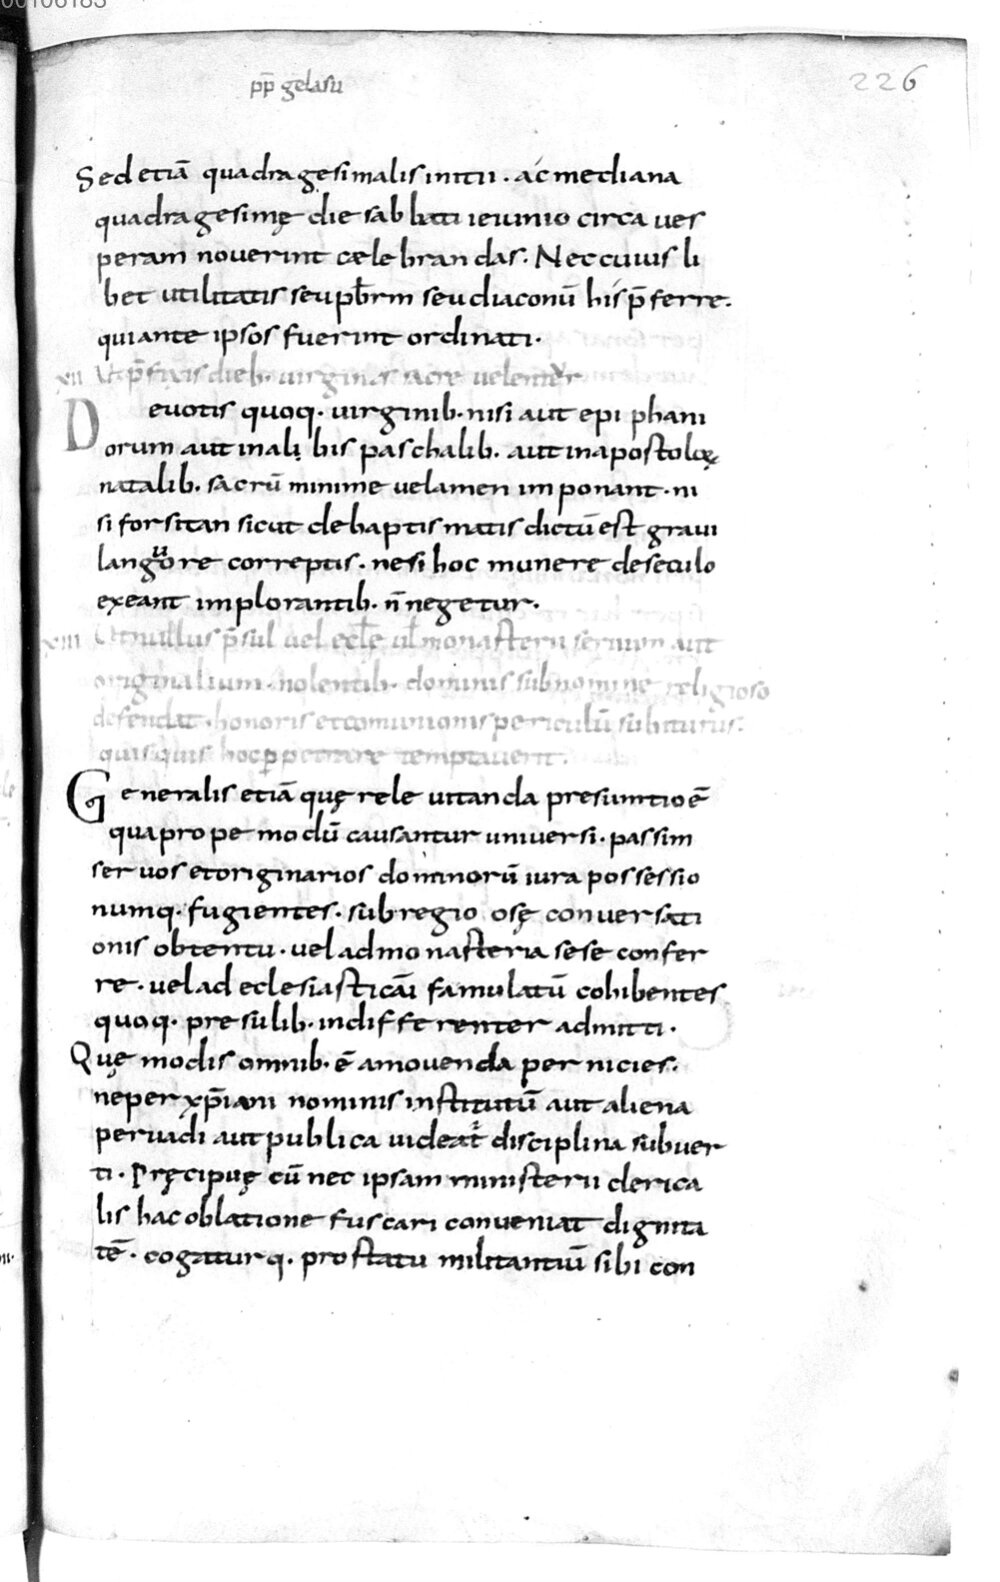 00106183
pp̄ gelasii
226
Sed etiā quadragesimalis initii · ac mediana
quadragesimę die sabbati ieiunio circa ues
peram noverint cælebrandas. Nec cuius li
bet utilitatis seu pb̄rm seu diaconū his p̄ferre.
qui ante ipsos fuerint ordinati.
xii Ut p̄fixis dieb. uirgines sacre uelent̄
Devotis quoq. uirginib. nisi aut epiphani
orum aut in albis paschalib. aut in apostolorum
natalib. sacrū minime velamen imponant. ni
si forsitan sicut de baptismatis dictū est graui
languore correptis. ne si hoc munere de seculo
exeant implorantib. n̄ negetur.
xiii Ut nullus p̄sul uel ecl̄e ul̄ monasterii seruum aut
originalium. nolentib. dominis sub nomine religioso
defendat. honoris et comunionis periculū subiturus.
quisquis hoc ꝑpetrare temptauerit.
Generalis etiā quęrele uitanda presumtio ē
qua propemodū causantur universi. passim
servos et originarios dominorū iura possessio
numq. fugientes. sub regiose conversati
onis obtentu. vel ad monasteria sese confer
re. vel ad eclesiasticā famulatū cohibentes
quoq. presulib. indifferenter admitti.
Quę modis omnib. ē amovenda pernicies.
ne per xp̄iani nominis institutū aut aliena
pervadi aut publica uideat̄ disciplina subver
ti. Pręcipuę cū nec ipsam ministerii clerica
lis hac oblatione fuscari conveniat dignita
tē. cogaturq. pro statu militantiū sibi con